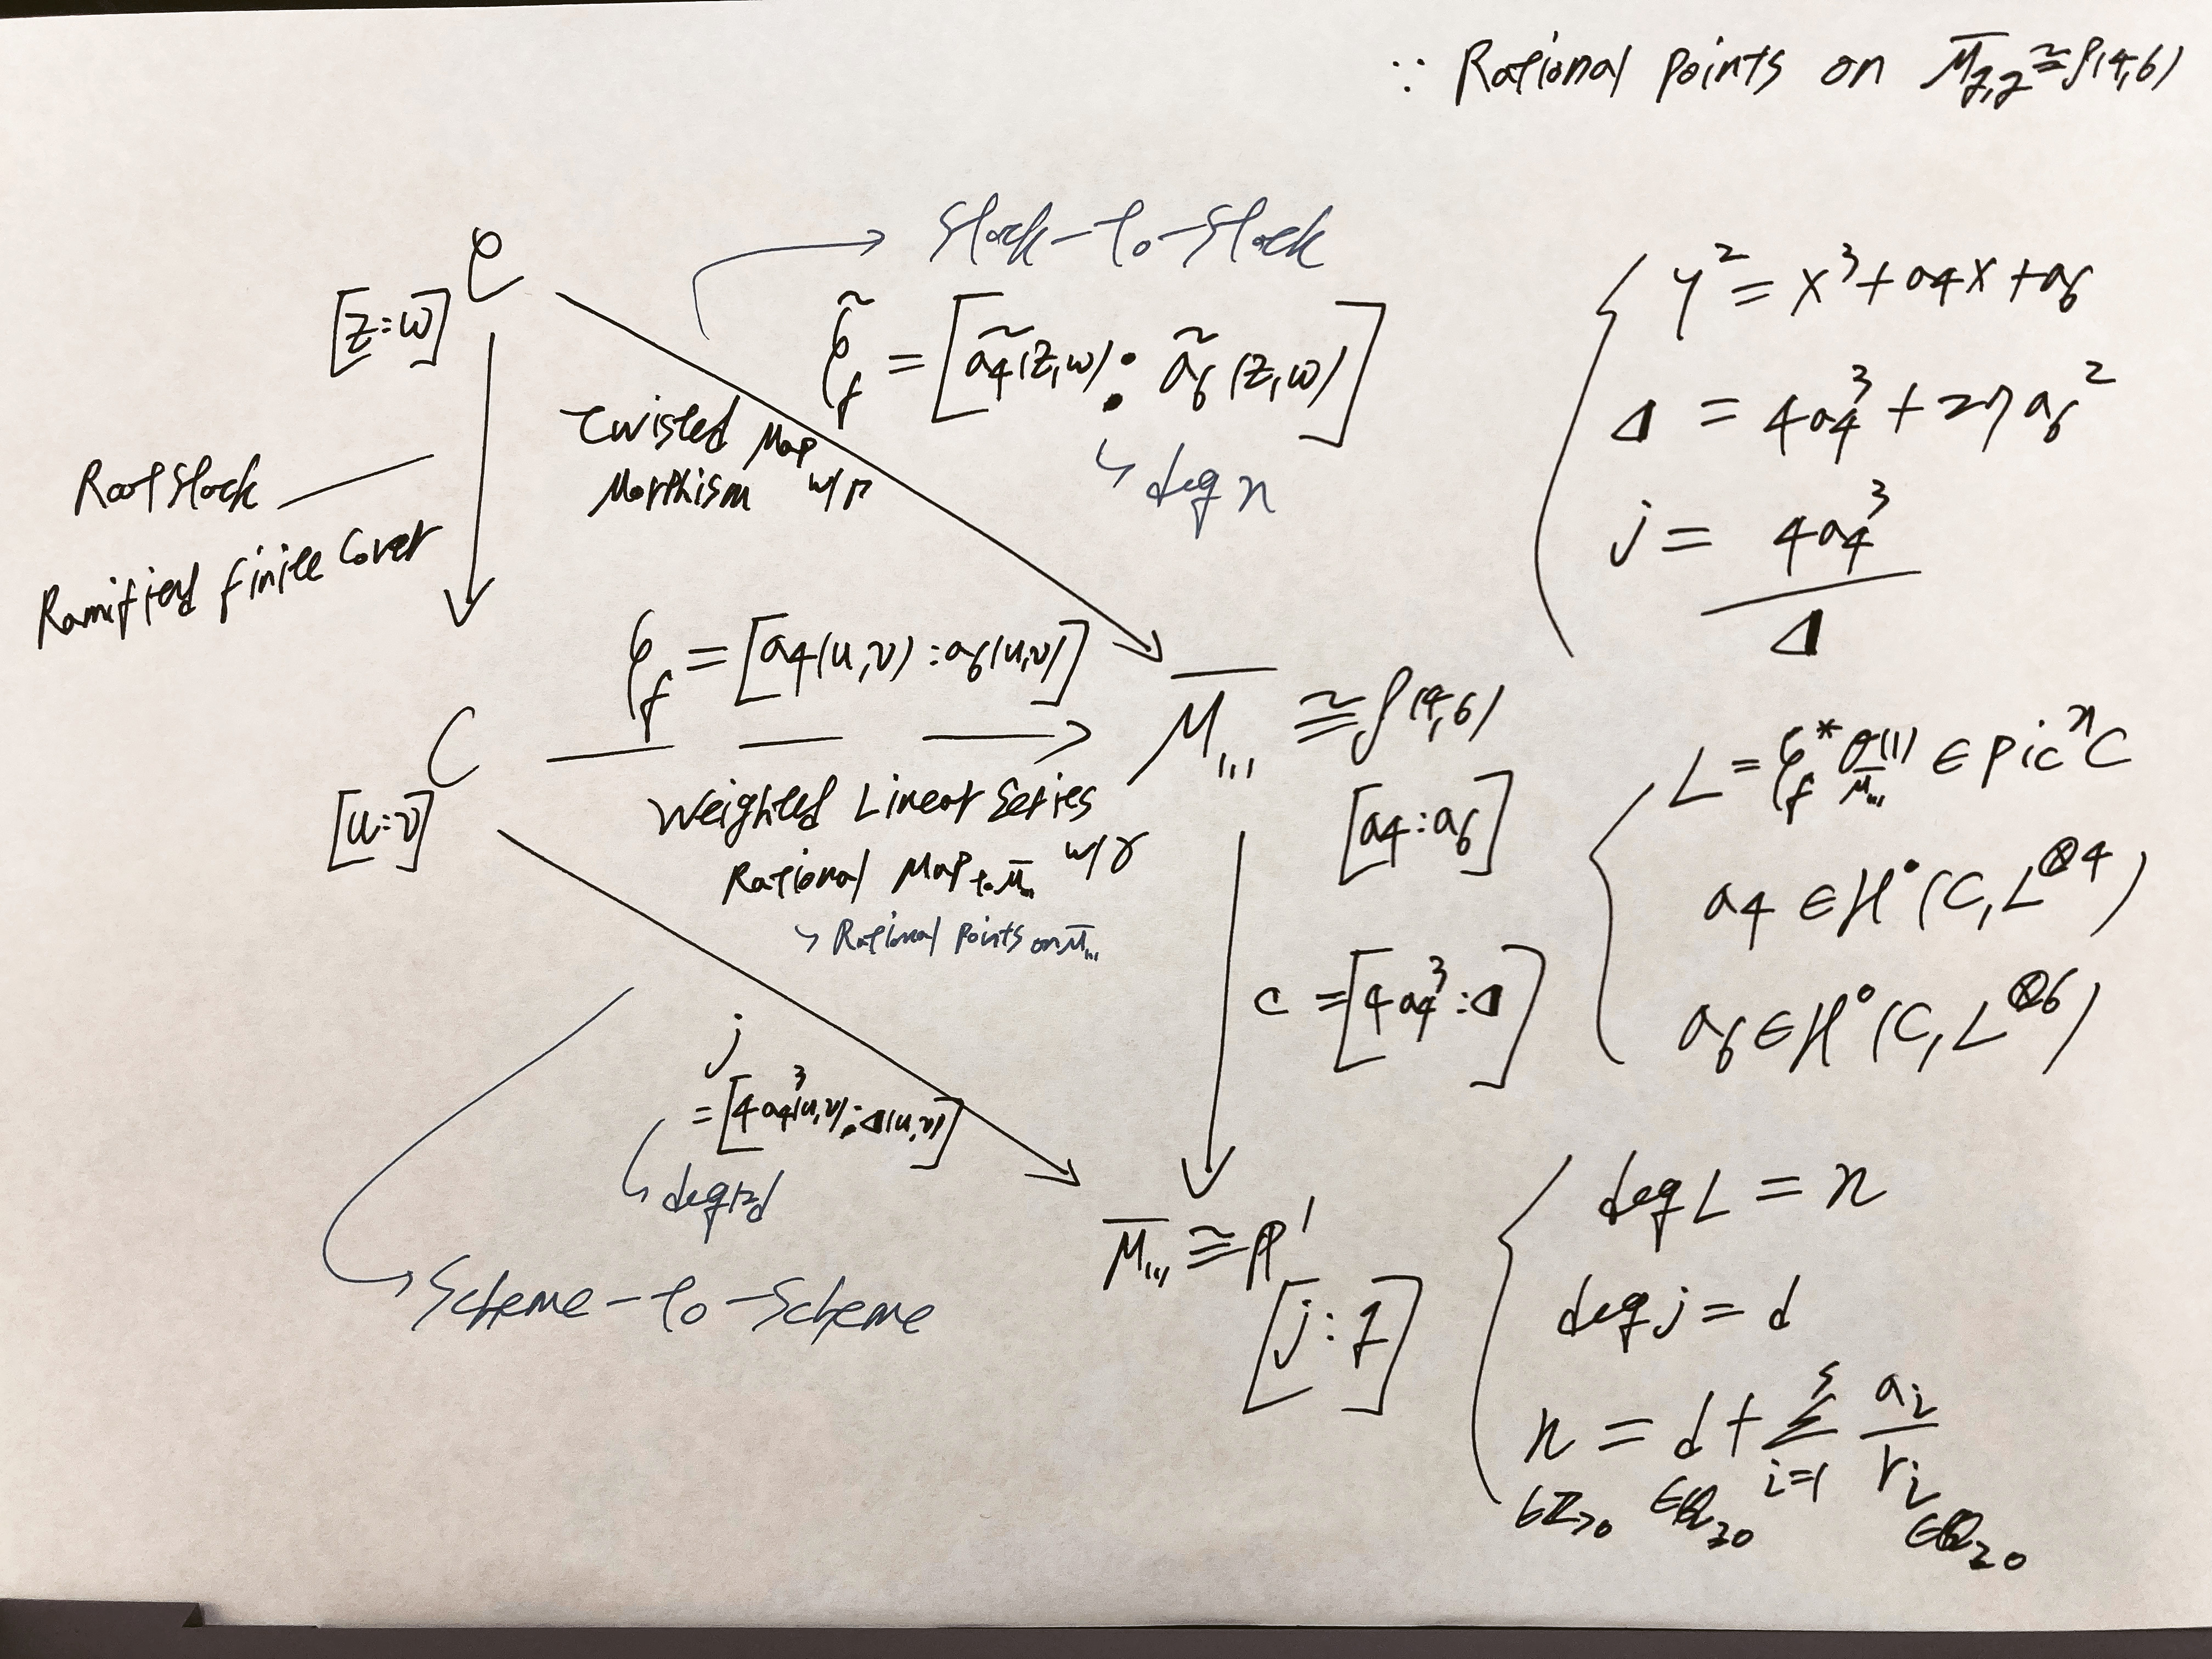 ∵ Rational points on M̅₁,₁ ≅ P(4,6)
Stack-to-Stack
𝒞
[z:w]
φ̃_f = [ã₄(z,w) : ã₆(z,w)]
↳ deg n
Twisted Map
Morphism w/Γ
Root stack
Ramified finite cover
φ_f = [a₄(u,v) : a₆(u,v)]
C
[u:v]
M̅₁,₁ ≅ P(4,6)
[a₄:a₆]
Weighted Linear Series
Rational Map to M̅₁,₁ w/γ
↳ Rational points on M̅₁,₁
c = [4a₄³ : Δ]
j
= [4a₄³(u,v) : Δ(u,v)]
↳ deg 12d
Scheme-to-Scheme
M̅₁,₁ ≅ P¹
[j:1]
y² = x³ + a₄x + a₆
Δ = 4a₄³ + 27a₆²
j = 4a₄³ / Δ
L = φ_f* O_M̅₁,₁(1) ∈ Picⁿ C
a₄ ∈ H⁰(C, L^⊗4)
a₆ ∈ H⁰(C, L^⊗6)
deg L = n
deg j = d
n = d + Σ_{i=1}^{s} a_i / r_i
∈ℤ≥0 ∈ℚ≥0 ∈ℚ≥0